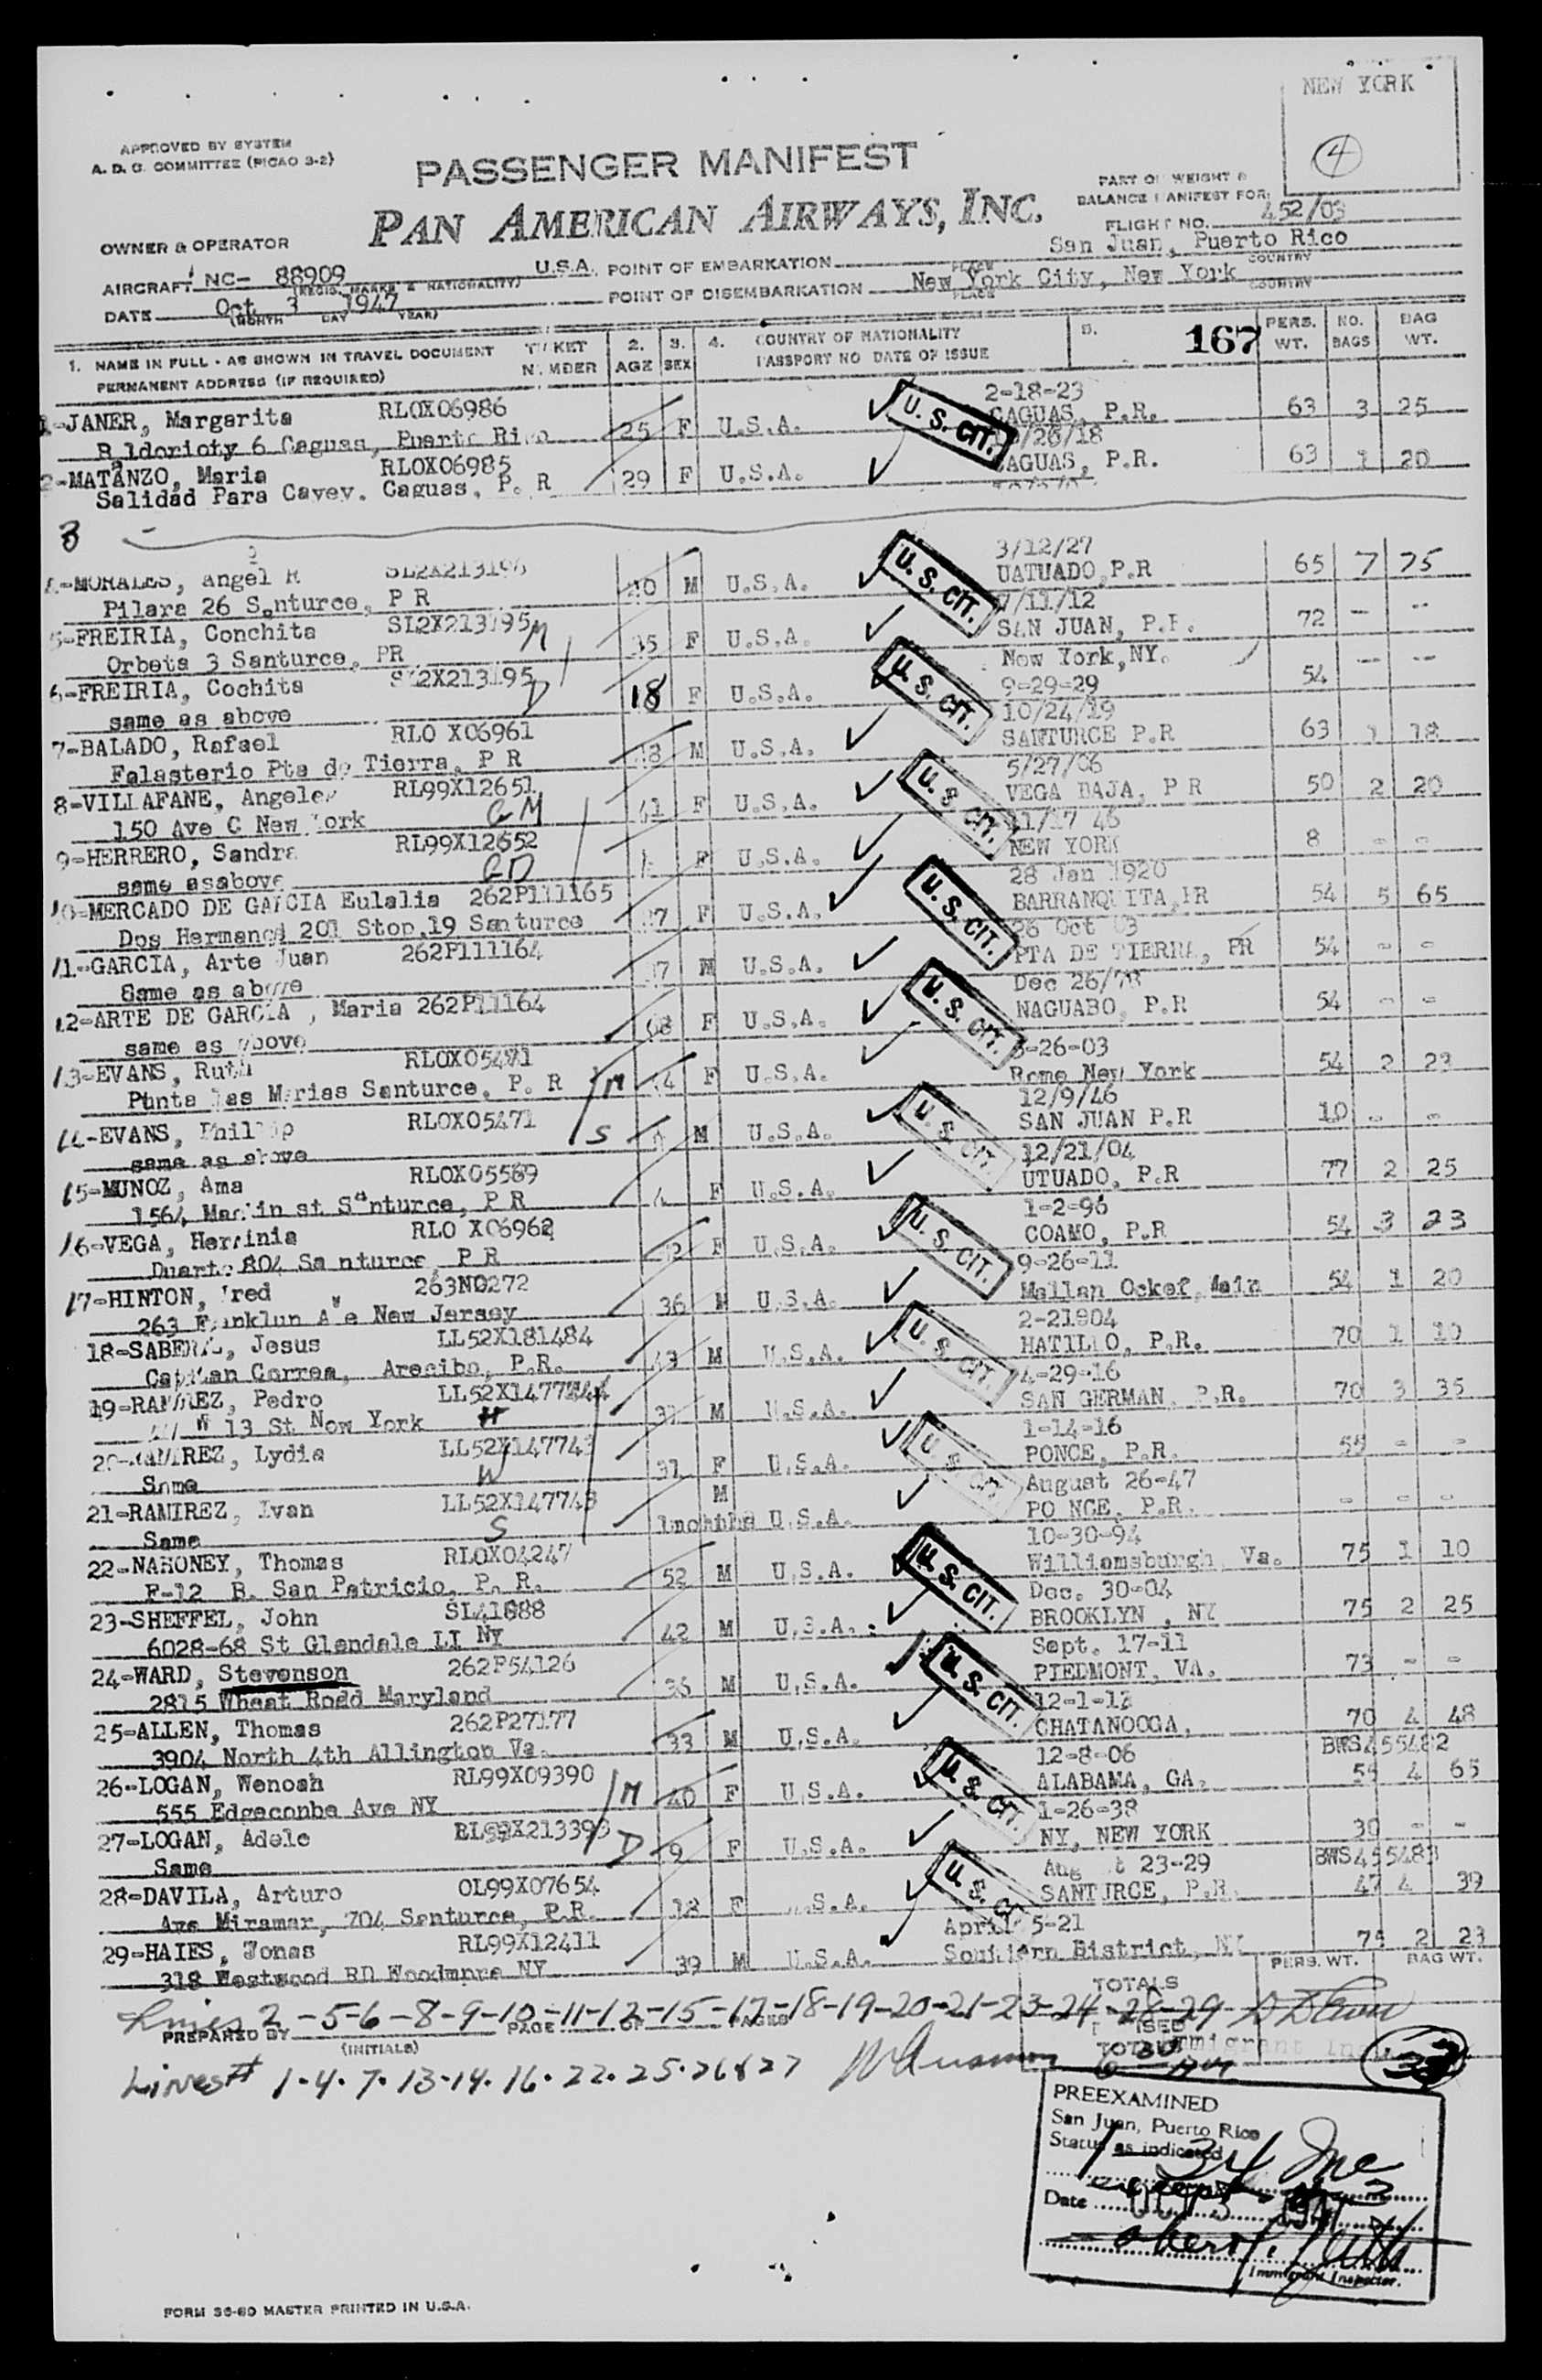 NEW YORK
4
APPROVED BY SYSTEM
A. D. C. COMMITTEE (PICAO 3-2)
PASSENGER MANIFEST
PART OF WEIGHT &
BALANCE MANIFEST FOR:
PAN AMERICAN AIRWAYS, INC.
FLIGHT NO. 452/03
OWNER & OPERATOR
San Juan, Puerto Rico
AIRCRAFT NC- 88909 U.S.A. POINT OF EMBARKATION PLACE COUNTRY
(REGIS. MARKS & NATIONALITY)
New York City, New York
DATE Oct 3 1947 POINT OF DISEMBARKATION PLACE COUNTRY
(MONTH DAY YEAR)
1. NAME IN FULL - AS SHOWN IN TRAVEL DOCUMENT TICKET 2. 3. 4. COUNTRY OF NATIONALITY 5. 167 PERS. NO. BAG
PERMANENT ADDRESS (IF REQUIRED) NUMBER AGE SEX PASSPORT NO DATE OF ISSUE WT. BAGS WT.
2-18-23
1-JANER, Margarita RLOX06986 25 F U.S.A. U. S. CIT. CAGUAS, P.R. 63 3 25
Baldorioty 6 Caguas, Puerto Rico /26/18
2-MATANZO, Maria RLOX06985 29 F U.S.A. CAGUAS, P.R. 63 1 20
Salidad Para Cayey. Caguas, P. R
3 -
3/12/27
4-MORALES, Angel R SL2X213196 M U.S.A. U. S. CIT. UATUADO,P.R 65 7 75
Pilara 26 Santurce, P R /11/12
5-FREIRIA, Conchita SL2X213195 M 35 F U.S.A. SAN JUAN, P.R. 72 - --
Orbeta 3 Santurce, PR New York,NY.
6-FREIRIA, Cochita SL2X213195 D 18 F U.S.A. U. S. CIT. 9-29-29 54 -- --
same as above 10/24/19
7-BALADO, Rafael RLO X06961 M U.S.A. SANTURCE P.R 63 1 18
Falasterio Pta de Tierra, P R 5/27/06
8-VILLAFANE, Angeles RL99X12651 GM 41 F U.S.A. U. S. CIT. VEGA BAJA, P R 50 2 20
150 Ave C New York 11/17 46
9-HERRERO, Sandra RL99X12652 GD F U.S.A. NEW YORK 8 - -
same asabove 28 Jan 1920
10-MERCADO DE GARCIA Eulalia 262P111165 F U.S.A. U. S. CIT. BARRANQUITA,PR 54 5 65
Dos Hermanos 201 Stop.19 Santurce 26 Oct 03
11-GARCIA, Arte Juan 262P111164 M U.S.A. PTA DE TIERRA, PR 54 - -
Same as above Dec 26/78
12-ARTE DE GARCIA , Maria 262P11164 68 F U.S.A. U. S. CIT. NAGUABO, P.R 54 - -
same as above -26-03
13-EVANS, Ruth RLOX05471 M F U.S.A. Rome New York 54 2 23
Punta las Marias Santurce, P. R 12/9/46
14-EVANS, Phillip RLOX05471 S M U.S.A. U. S. CIT. SAN JUAN P.R 10 - -
same as above 12/21/04
15-MUNOZ, Ama RLOX05569 F U.S.A. UTUADO, P.R 77 2 25
1564 st Santurce, P R 1-2-96
16-VEGA, Herminia RLO X06962 F U.S.A. U. S. CIT. COAMO, P.R 54 3 23
Duarte 804 Santurce, P R 9-26-11
17-HINTON, Fred 263N0272 36 M U.S.A. Mallan Ockef, Main 54 1 20
263 Franklun Ave New Jersey 2-21904
18-SABERAL, Jesus LL52X181484 43 M U.S.A. U. S. CIT. HATILLO, P.R. 70 1 10
Capitan Correa, Arecibo, P.R. 4-29-16
19-RAMIREZ, Pedro H M U.S.A. SAN GERMAN, P.R. 70 3 35
W 13 St New York 1-14-16
20-RAMIREZ, Lydia LL52X147743 W 31 F U.S.A. U. S. CIT. PONCE, P.R. - -
Same August 26-47
21-RAMIREZ, Ivan LL52X147743 S 1months M U.S.A. PO NCE, P.R. - - -
Same 10-30-94
22-NAHONEY, Thomas RLOX04247 52 M U.S.A. U. S. CIT. Williamsburgh, Va. 75 1 10
F-12 B. San Patricio, P. R. Dec. 30-04
23-SHEFFEL, John SL41888 42 M U.S.A. BROOKLYN , NY 75 2 25
6028-68 St Glendale LI NY Sept. 17-11
24-WARD, Stevenson 262P54126 M U.S.A. U. S. CIT. PIEDMONT, VA. 73 - -
2815 Wheat Rodd Maryland 12-1-13
25-ALLEN, Thomas 262P27177 33 M U.S.A. CHATANOOGA, 70 4 48
3904 North 4th Allington Va. 12-8-06 BWS455482
26-LOGAN, Wenoah RL99X09390 M 40 F U.S.A. U. S. CIT. ALABAMA, GA. 55 4 65
555 Edgecombe Ave NY 1-26-38
27-LOGAN, Adele RL99X213393 D 9 F U.S.A. NY, NEW YORK 30 - -
Same Aug 23-29 BWS455483
28-DAVILA, Arturo OL99X07654 18 F U.S.A. U. S. CIT. SANTURCE, P.R. 47 4 39
Ave Miramar, 704 Santurce, P.R. April 5-21
29-HAIES, Jonas RL99X12411 39 M U.S.A. Southern District, NY 75 2 23
318 Westwood RD Woodmore NY PERS. WT. BAG WT.
TOTALS
Lines 2-5-6-8-9-10-11-12-15-17-18-19-20-21-23-24-28-29
PREPARED BY PAGE OF PAGES
(INITIALS)
TOTALS Immigrant Insp.
Lines# 1.4.7.13.14.16.22.25.26&27
PREEXAMINED
San Juan, Puerto Rico
Status as indicated
1-34 Inc
except # 3
Date OCT 3 1947
Immigrant Inspector.
FORM 36-60 MASTER PRINTED IN U.S.A.